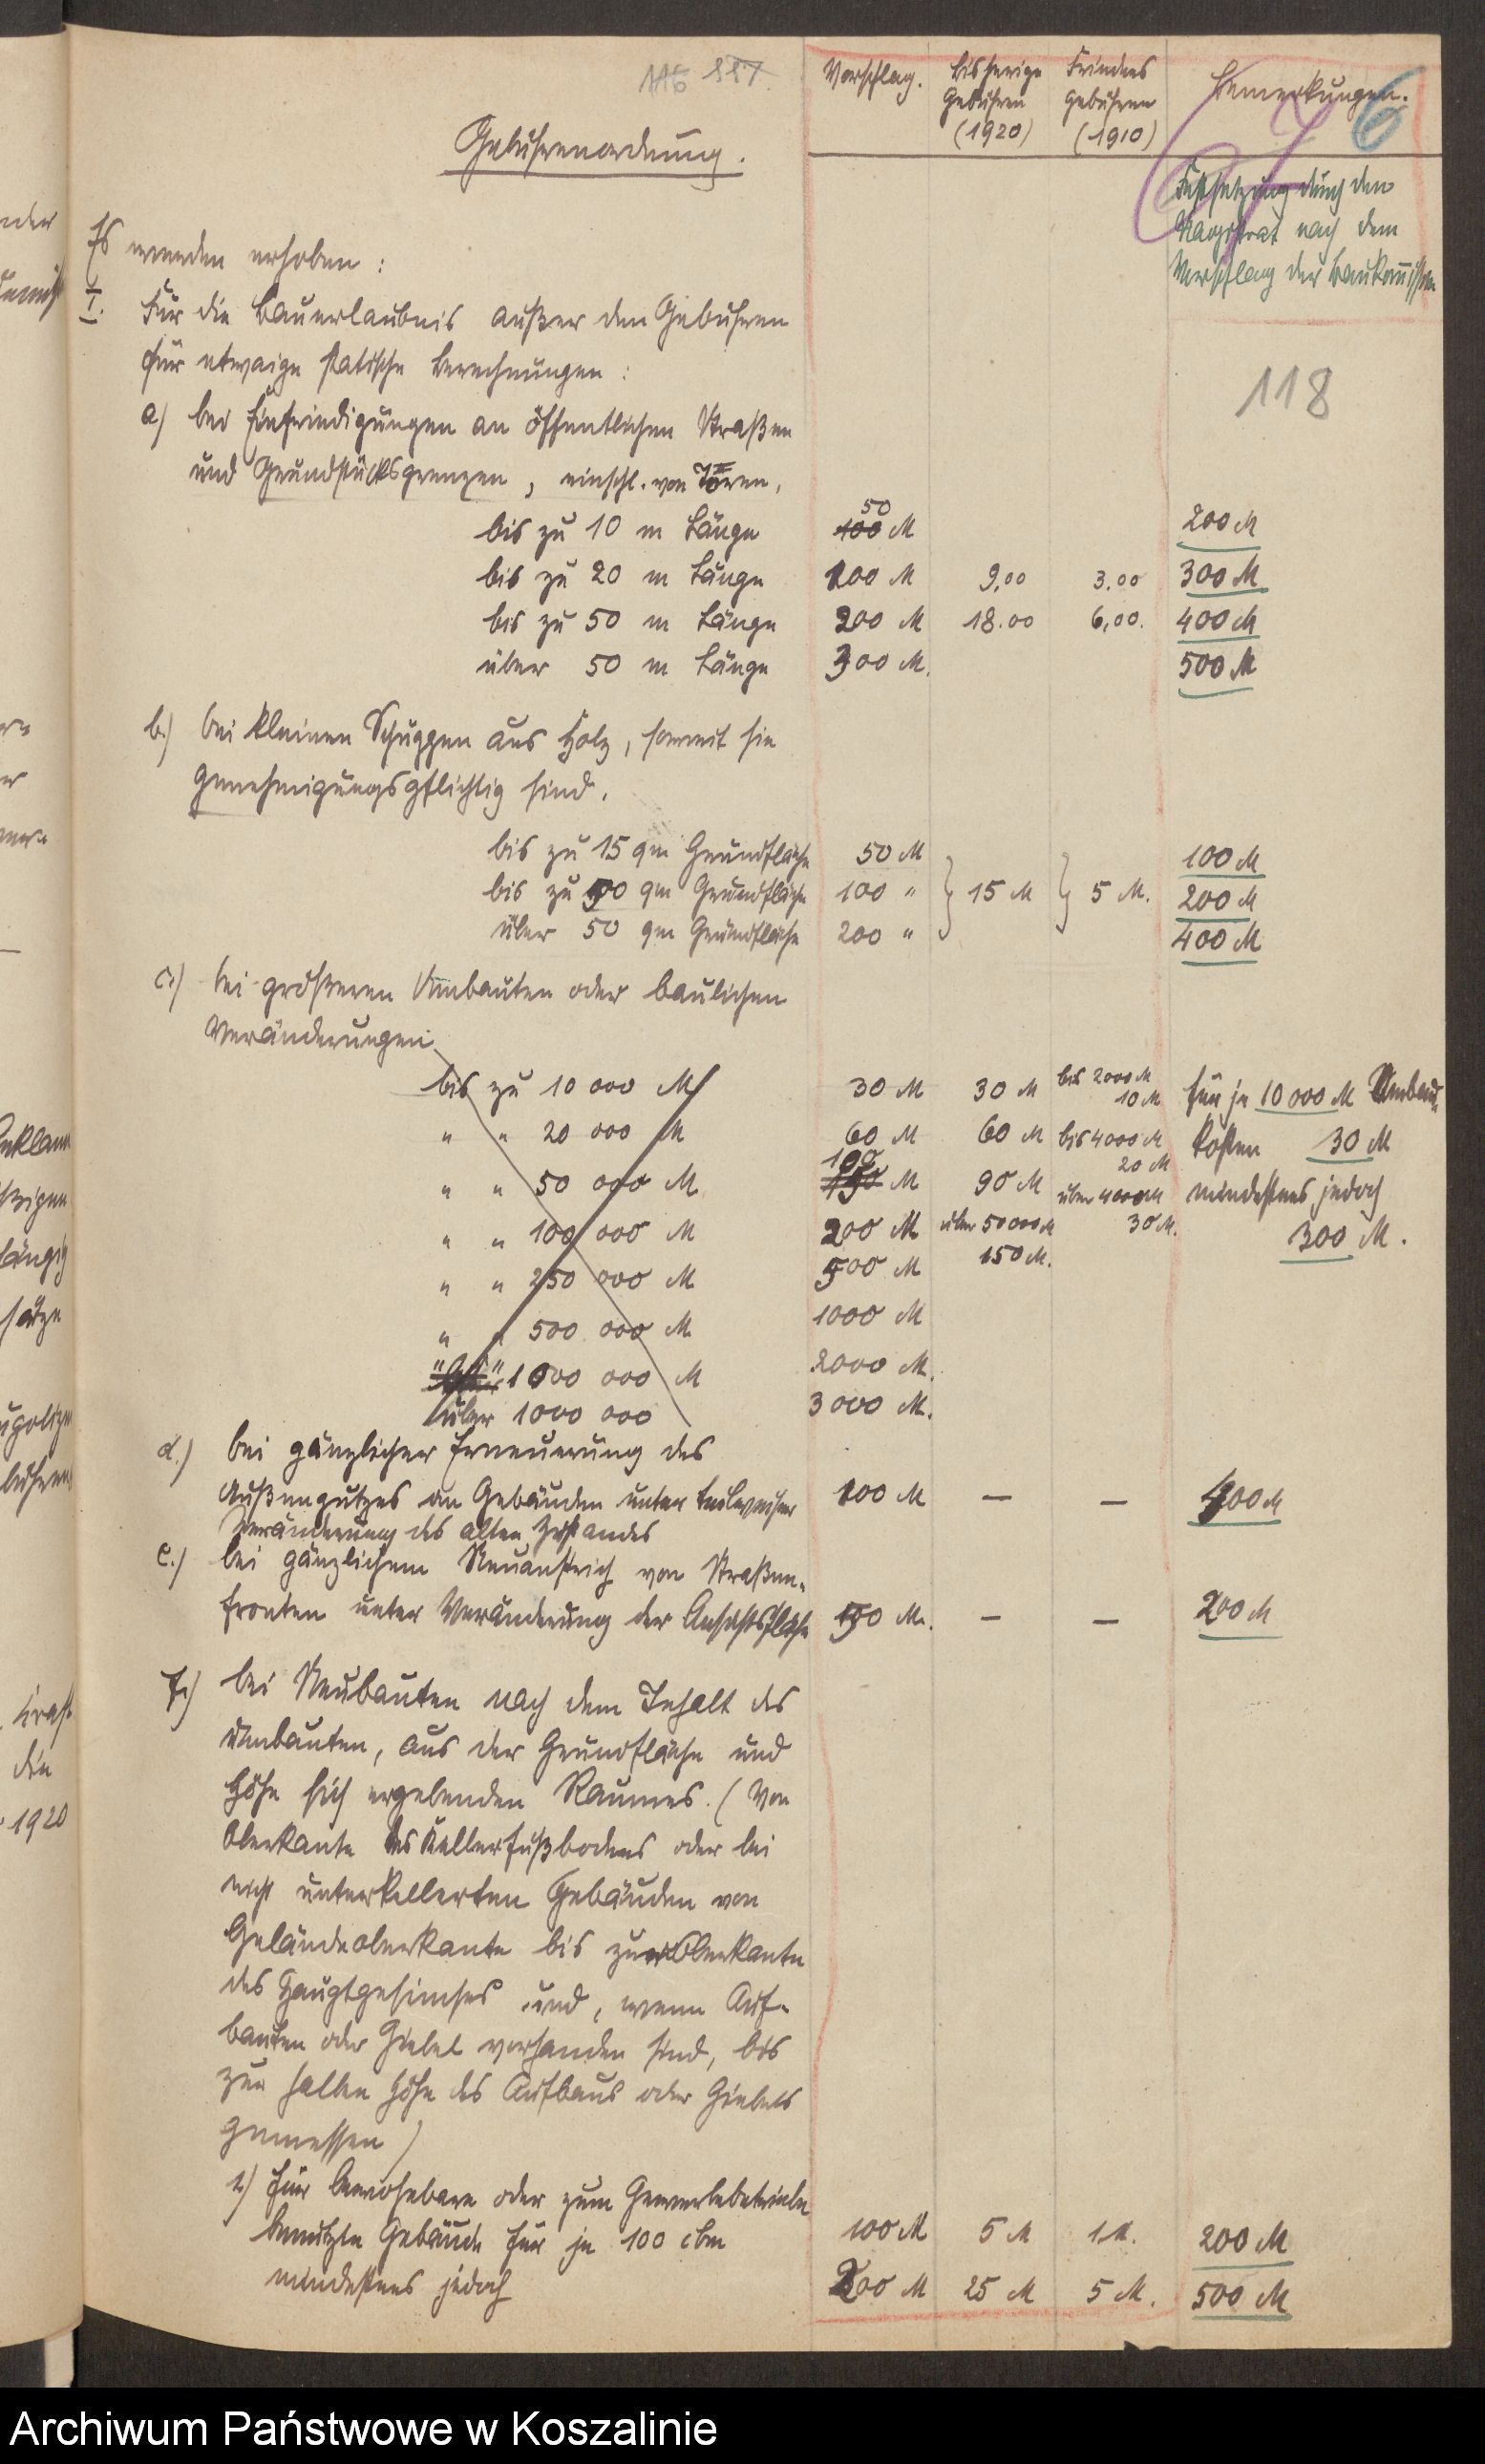 118
Gebührenordnung.
Vorschlag.
bisherige Gebühren (1920)
Friedens Gebühren (1910)
Bemerkungen.
6
Festsetzung durch den
Magistrat nach dem
Vorschlag der Baukommission
118
Es werden erhoben:
I. Für die Bauerlaubnis außer den Gebühren
für etwaige statische Berechnungen:
a) bei Einfriedigungen an öffentlichen Straßen
und Grundstücksgrenzen, einschl. von Toren,
bis zu 10 m Länge 100 50 M 200 M
bis zu 20 m Länge 100 M 9,00 3.00 300 M
bis zu 50 m Länge 200 M 18.00 6,00. 400 M
über 50 m Länge 300 M. 500 M
b.) bei kleinen Schuppen aus Holz, soweit sie
genehmigungspflichtig sind.
bis zu 15 qm Grundfläche 50 M 100 M
bis zu 50 qm Grundfläche 100 " } 15 M } 5 M. 200 M
über 50 qm Grundfläche 200 " 400 M
c.) bei größeren Umbauten oder baulichen
Veränderungen
bis zu 10 000 M 30 M 30 M bis 2000 M 10 M für je 10 000 M Umbau-
" " 20 000 M 60 M 60 M bis 4000 M 20 M kosten 30 M
" " 50 000 M 150 100 M 90 M über 4000 M 30 M. mindestens jedoch
" " 100 000 M 200 M über 50 000 M 150 M. 300 M.
" " 250 000 M 500 M
" " 500 000 M 1000 M
" " 1000 000 M 2000 M.
über 1000 000 3000 M.
d.) bei gänzlicher Erneuerung des
Außenputzes an Gebäuden unter teilweiser 100 M — — 400 M
Veränderung des alten Zustandes
e.) bei gänzlichem Neuanstrich von Straßen-
fronten unter Veränderung der Ansichtsfläche 50 M. — — 200 M
f.) bei Neubauten nach dem Inhalt des
umbauten, aus der Grundfläche und
Höhe sich ergebenden Raumes. (Von
Oberkante des Kellerfußbodens oder bei
nicht unterkellerten Gebäuden von
Geländeoberkante bis zur Oberkante
des Hauptgesimses und, wenn Auf-
bauten oder Giebel vorhanden sind, bis
zur halben Höhe des Aufbaus oder Giebels
gemessen)
1.) Für bewohnbare oder zum Gewerbebetriebe
benutzte Gebäude für je 100 cbm 100 M 5 M 1 M. 200 M
mindestens jedoch 200 M 25 M 5 M. 500 M
1920
Archiwum Państwowe w Koszalinie